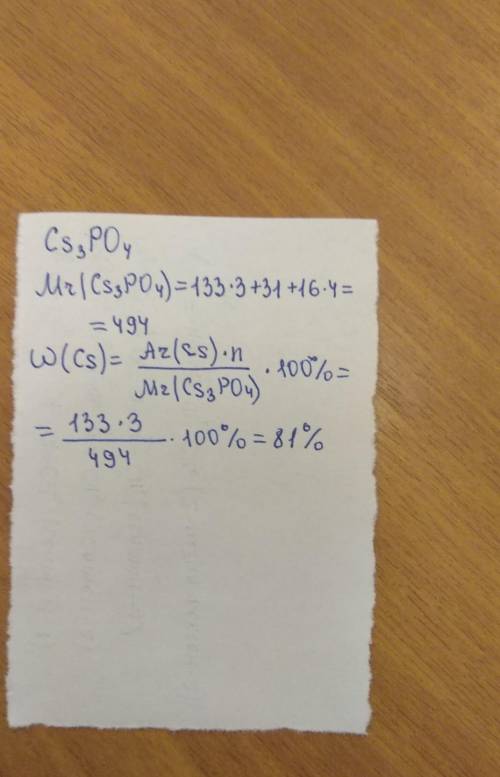 Cs₃PO₄
Mr(Cs₃PO₄)=133·3+31+16·4=
=494
W(Cs)= Ar(Cs)·n / Mr(Cs₃PO₄) · 100%=
= 133·3 / 494 · 100% = 81%